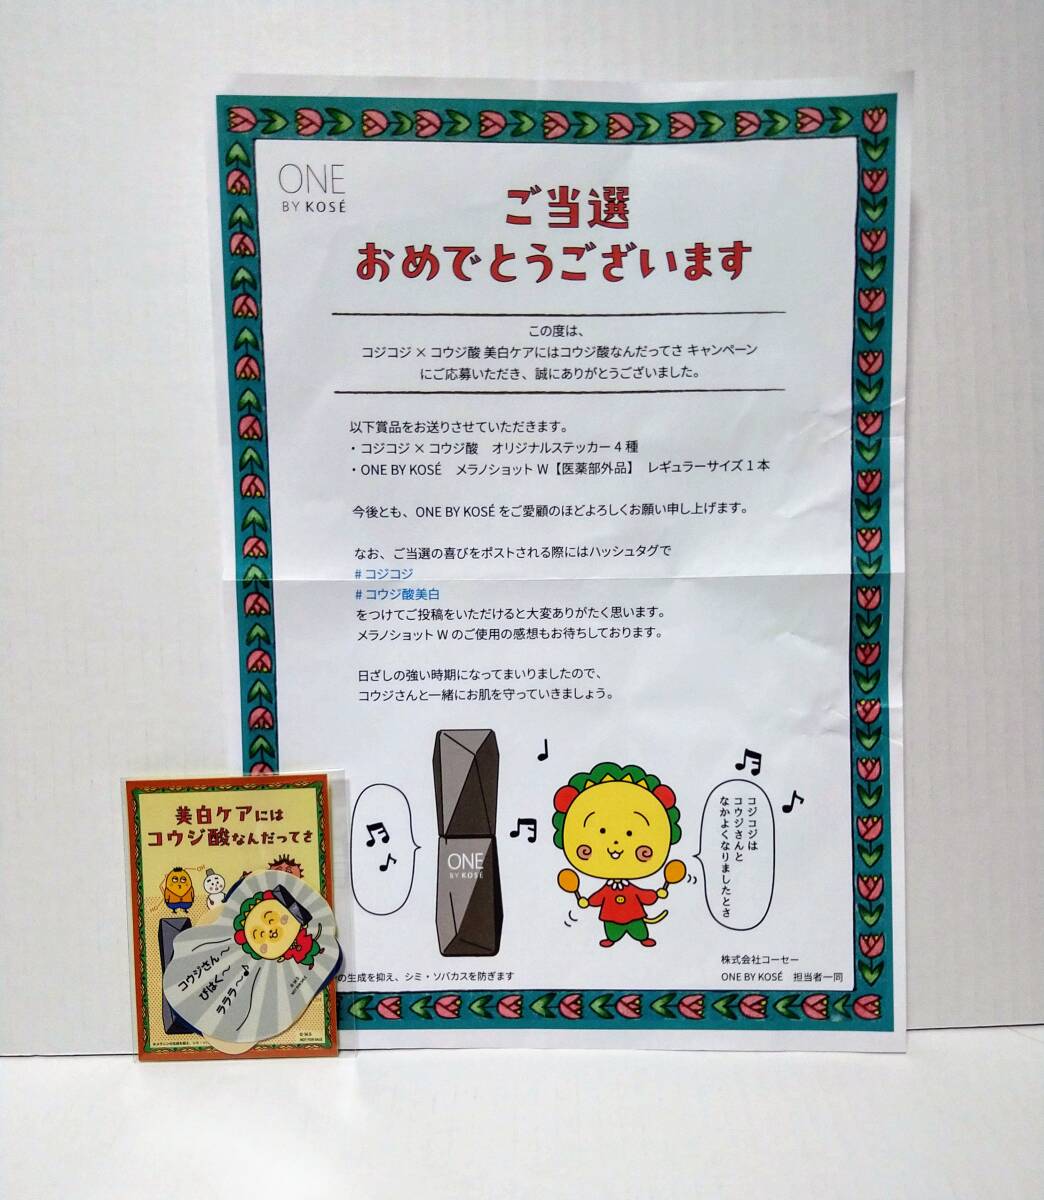 ONE
BY KOSÉ
ご当選
おめでとうございます
この度は、
コジコジ × コウジ酸 美白ケアにはコウジ酸なんだってさ キャンペーン
にご応募いただき、誠にありがとうございました。
以下賞品をお送りさせていただきます。
・コジコジ × コウジ酸　オリジナルステッカー 4 種
・ONE BY KOSÉ　メラノショット W【医薬部外品】　レギュラーサイズ 1 本
今後とも、ONE BY KOSÉ をご愛顧のほどよろしくお願い申し上げます。
なお、ご当選の喜びをポストされる際にはハッシュタグで
# コジコジ
# コウジ酸美白
をつけてご投稿をいただけると大変ありがたく思います。
メラノショット W のご使用の感想もお待ちしております。
日ざしの強い時期になってまいりましたので、
コウジさんと一緒にお肌を守っていきましょう。
ONE
BY KOSÉ
コジコジは
コウジさんと
なかよくなりましたとさ
の生成を抑え、シミ・ソバカスを防ぎます
株式会社コーセー
ONE BY KOSÉ　担当者一同
美白ケアには
コウジ酸なんだってさ
コウジさん〜
びはく〜
ラララ〜♪
NOT FOR SALE